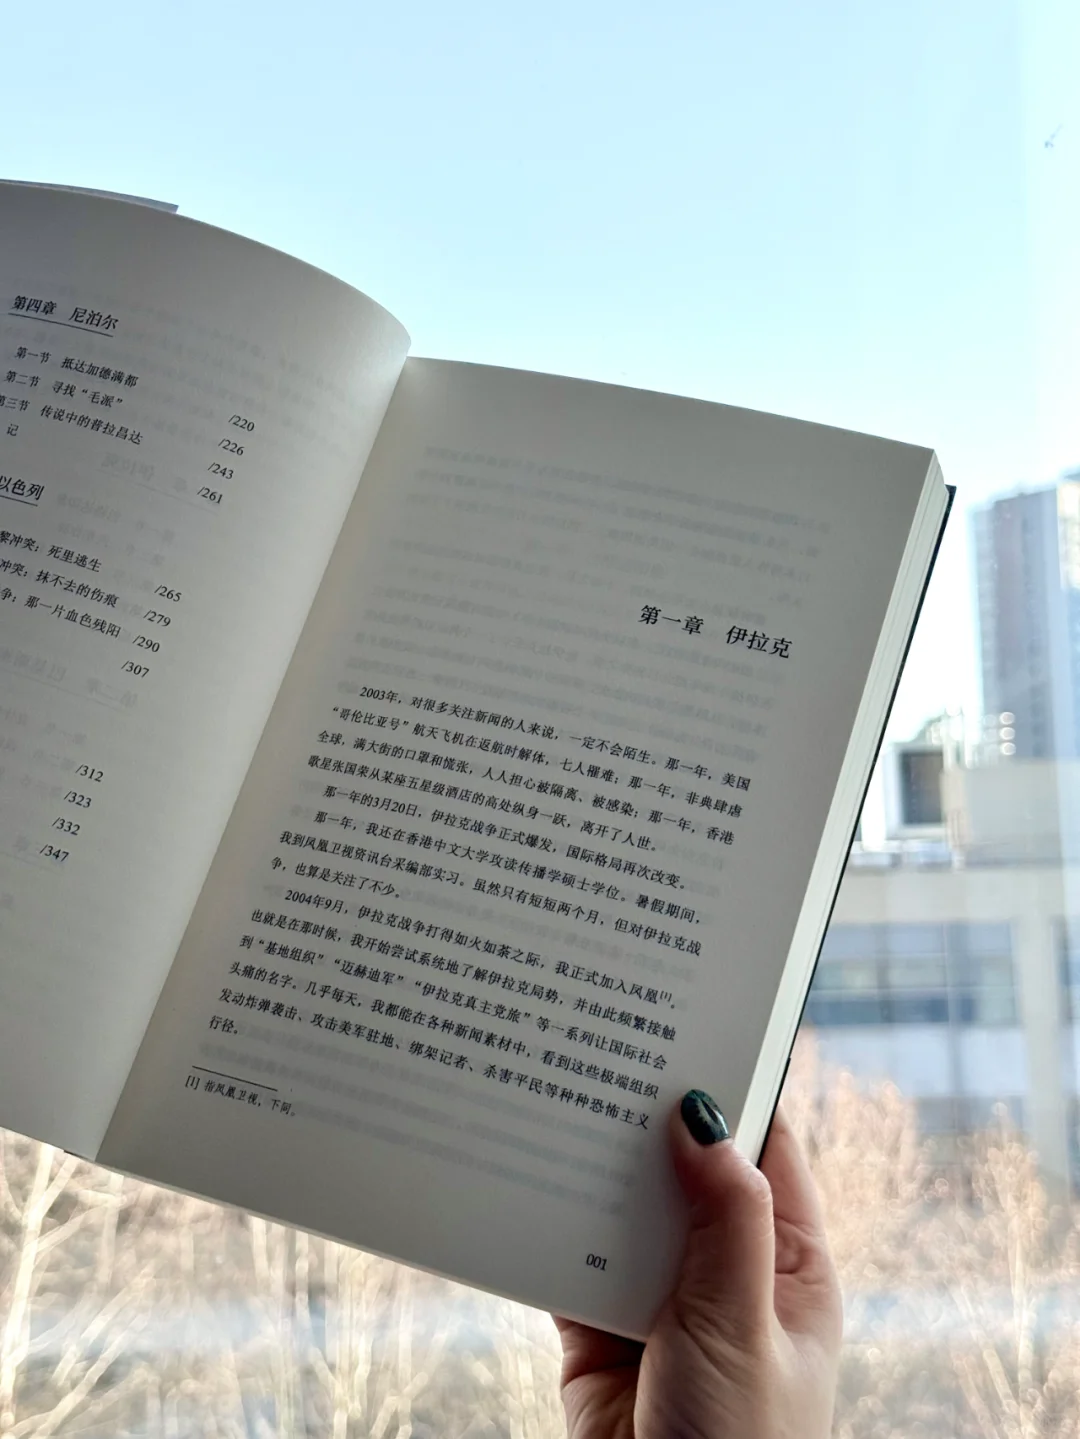 第四章 尼泊尔
第一节 抵达加德满都 /220
第二节 寻找“毛派” /226
第三节 传说中的普拉昌达 /243
记 /261
以色列
黎冲突：死里逃生 /265
冲突：抹不去的伤痕 /279
争：那一片血色残阳 /290
/307
/312
/323
/332
/347
第一章 伊拉克
2003年，对很多关注新闻的人来说，一定不会陌生。那一年，美国
“哥伦比亚号”航天飞机在返航时解体，七人罹难；那一年，非典肆虐
全球，满大街的口罩和慌张，人人担心被隔离、被感染；那一年，香港
歌星张国荣从某座五星级酒店的高处纵身一跃，离开了人世。
那一年的3月20日，伊拉克战争正式爆发，国际格局再次改变。
那一年，我还在香港中文大学攻读传播学硕士学位。暑假期间，
我到凤凰卫视资讯台采编部实习。虽然只有短短两个月，但对伊拉克战
争，也算是关注了不少。
2004年9月，伊拉克战争打得如火如荼之际，我正式加入凤凰[1]。
也就是在那时候，我开始尝试系统地了解伊拉克局势，并由此频繁接触
到“基地组织”“迈赫迪军”“伊拉克真主党旅”等一系列让国际社会
头痛的名字。几乎每天，我都能在各种新闻素材中，看到这些极端组织
发动炸弹袭击、攻击美军驻地、绑架记者、杀害平民等种种恐怖主义
行径。
[1] 指凤凰卫视，下同。
001